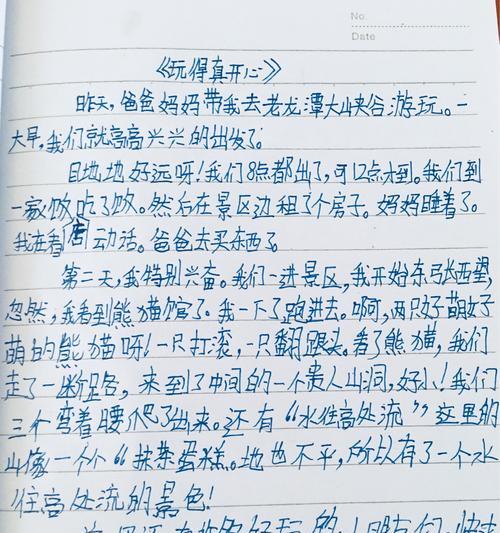 No.
Date
《玩得真开心》
昨天,爸爸妈妈带我去老龙潭大峡谷游玩。一
大早,我们就高高兴兴的出发了。
目地地好远呀!我们8点都出了,可12点才到。我们到
一家饭吃了饭。然后在景区边租了个房子。妈妈睡着了。
我在看 动活。爸爸去买东西了。
第二天,我特别兴奋。我们一进景区,我开始东张西望,
忽然,我看到熊猫馆了。我一下了跑进去。啊,两只好萌好
萌的熊猫呀!一只打滚,一只翻跟头。看了熊猫,我们
走了一断路,来到了中间的一个贵人山洞,好小!我们
三个弯着腰爬了出来。还有“水往高处流”这里的
山像一个个“抹茶蛋糕。地也不平,所以有了一个水
往高处流的景色!